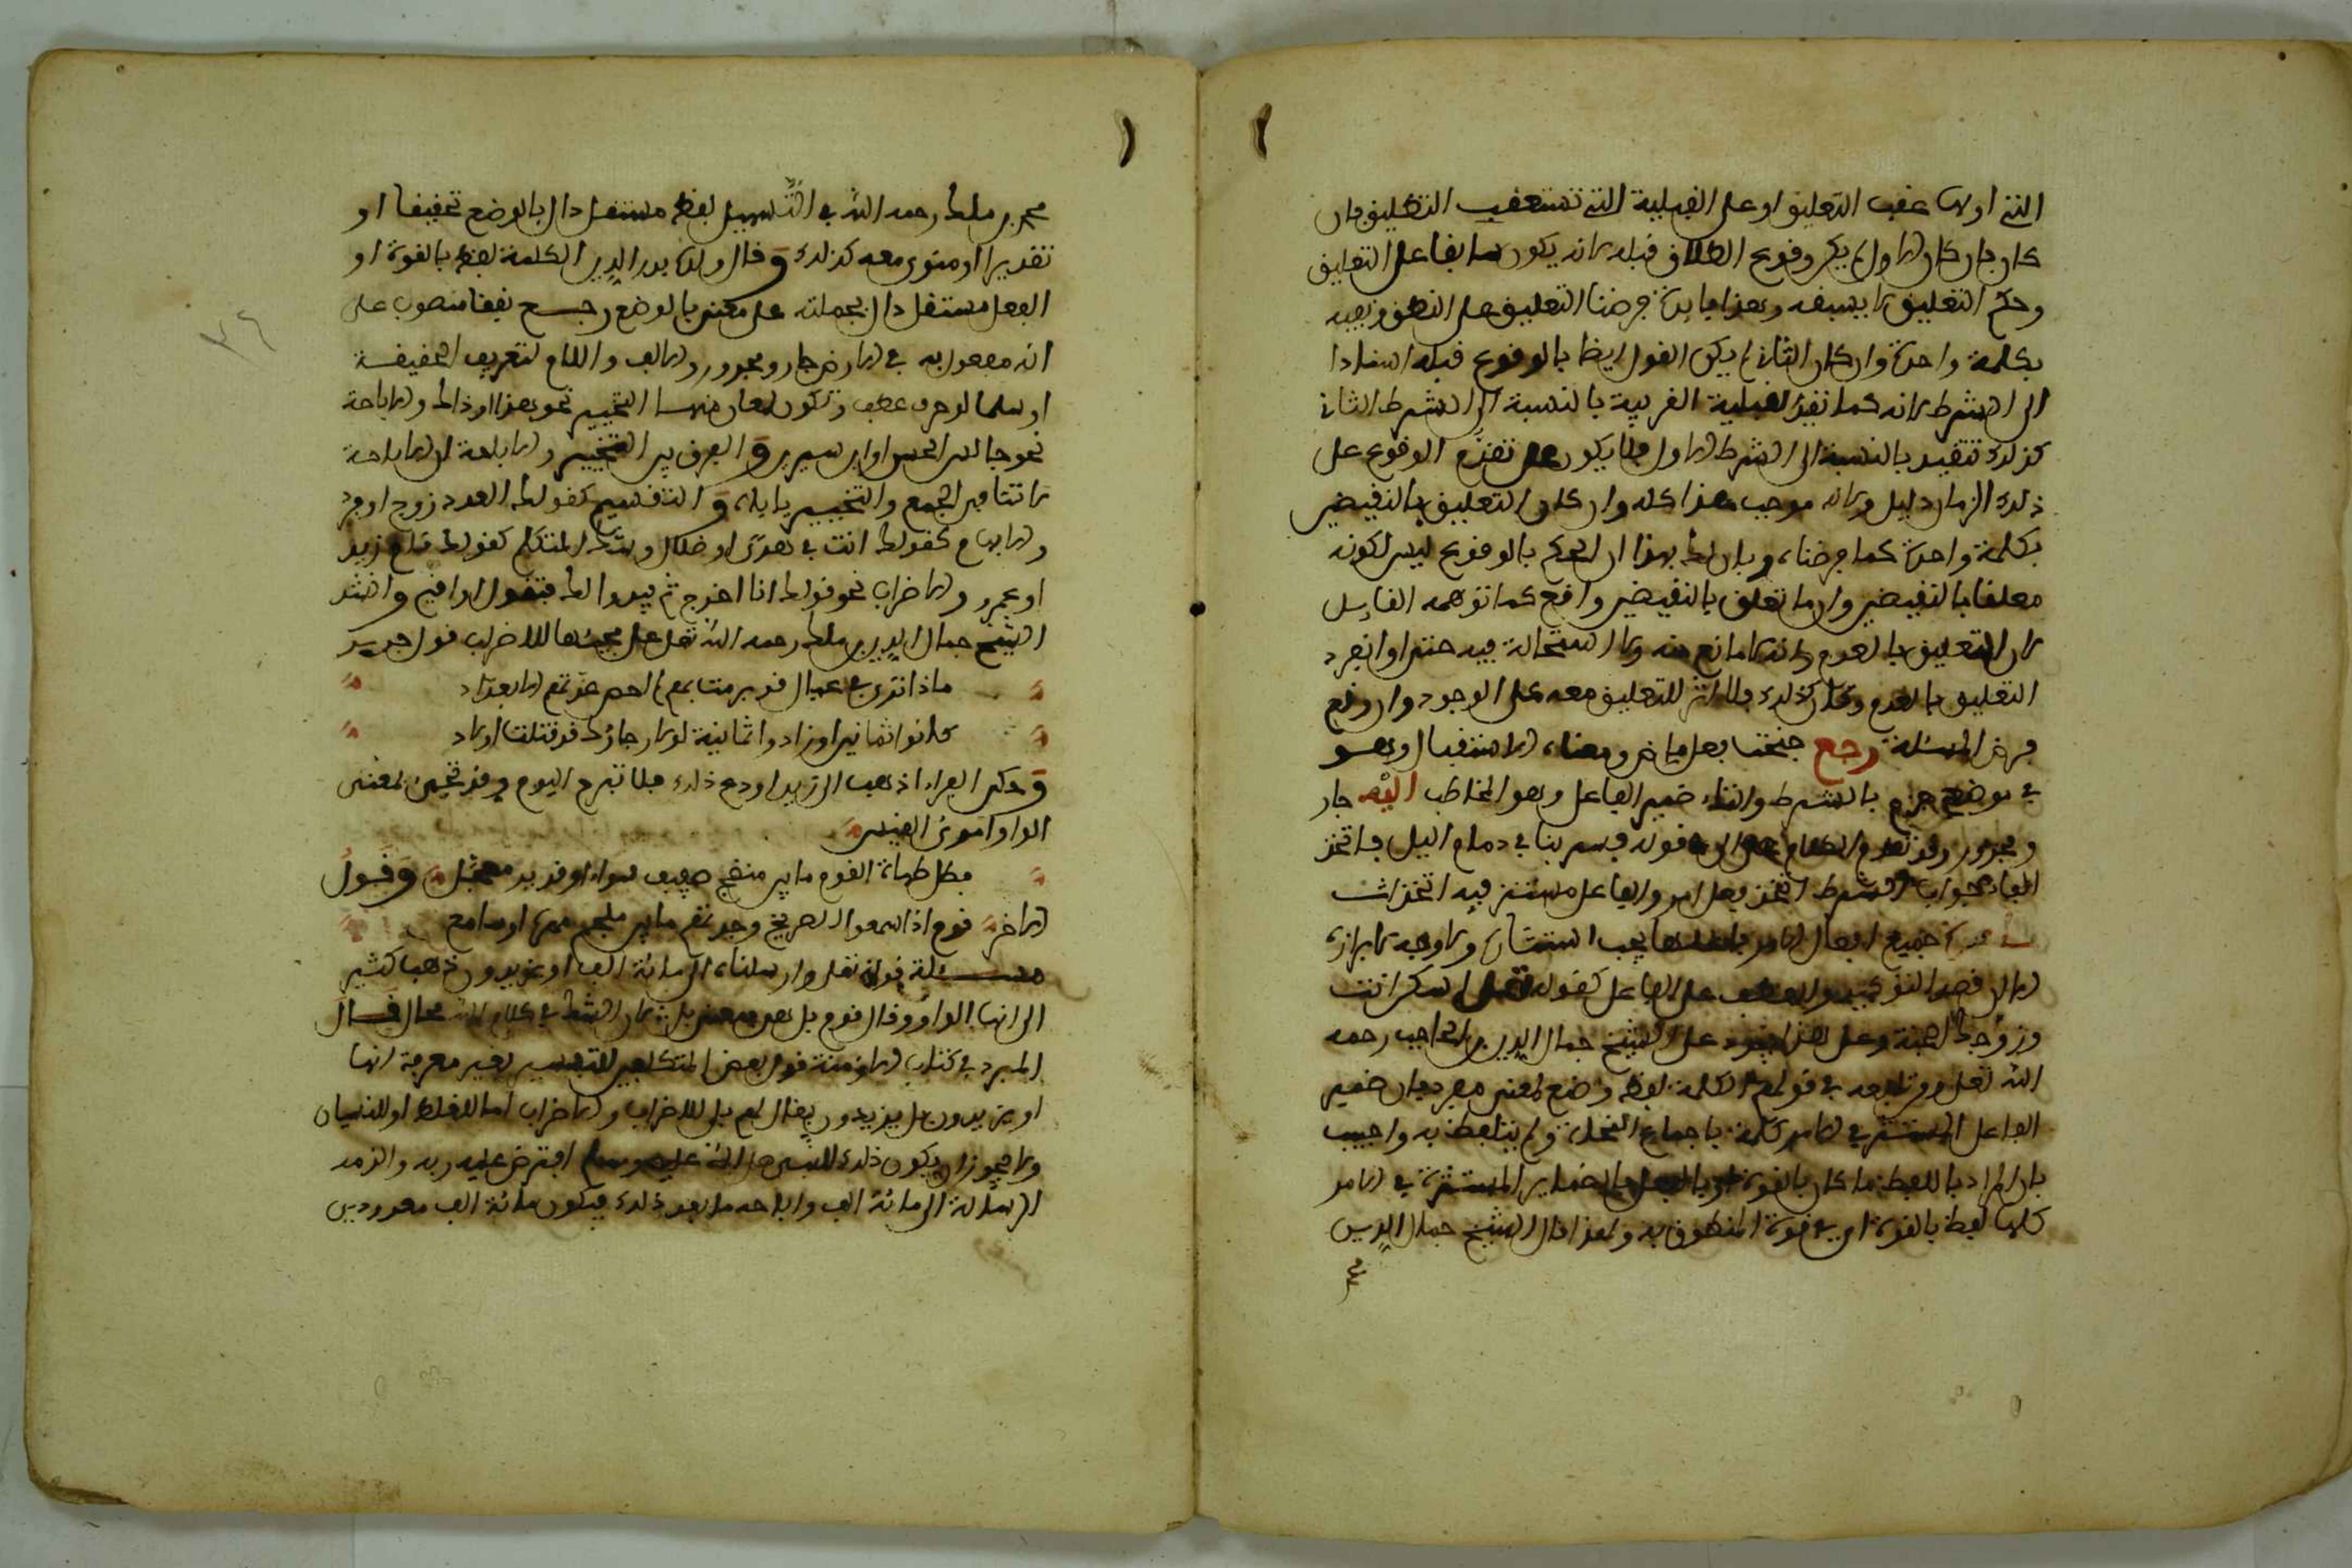 التي اولها عقب التعليق او على القبلية التي تستعقب التطليق فان
كان فان كان الاول لم يكن وقوع الطلاق قبله لانه يكون سابقا على التعليق
وحكم التعليق لا يسبقه وهذا فايدة فرضنا التعليق على النطق بقبله
بكلمة واحدة وان كان الثاني لم يكن القول ايضا بالوقوع قبله استنادا
الى الشرط لانه كما تقيد القبلية القريبة بالنسبة الى الشرط الثاني
كذلك تتقيد بالنسبة الى الشرط الاول فلا يكون على تقدم الوقوع على
ذلك الزمان دليل ولا له موجب هذا كله وان كان التعليق بالنقيضين
بكلمة واحدة كما فرضنا وبان لك بهذا ان الحكم بالوقوع ليس لكونه
معلقا بالنقيضين وان ما تعلق بالنقيضين واقع كما توهمه القايل
لان التعليق بالعدم لا مانع منه ولا استحالة فيه حتى لو انفرد
التعليق بالعدم وكان كذلك فلا اثر للتعليق معه على الوجود وان وقع
فرض المسئلة رجع جنحت فعل ماض ومعناه الاستقبال وهو
في موضع جزم بالشرط والتاء ضمير الفاعل وهو المخاطب اليه جار
ومجرور وقد تقدم الكلام على الى قوله فسر بنا في ذمام الليل فاتخذ
الفاء جواب الشرط اتخذ فعل امر والفاعل مستتر فيه اتخذ انت
جميع افعال الامر يجب استتاره ولا وجه لابرازه
الا ان قصد التوكيد والعطف على الفاعل كقوله تعلى اسكن انت
وزوجك الجنة وعلى هذا على الشيخ جمال الدين بن الحاجب رحمه
الله تعلى ومن تبعه في قولهم الكلمة لفظ وضع لمعنى مفرد بان ضمير
الفاعل المستتر في الامر كلمة باجماع النحاة ولم يتلفظ به واجيب
بان المراد باللفظ ما كان بالقوة او بالفعل والضماير المستترة في الامر
كلها لفظ بالقوة اي في قوة المنطوق به ولهذا قال الشيخ جمال الدين
محمد بن ملك رحمه الله في التسهيل لفظ مستقل دال بالوضع تحقيقا او
تقديرا او منوي معه كذلك وقال ولده بدر الدين الكلمة لفظ بالقوة او
الفعل مستقل دال بجملته على معنى بالوضع رجع نفقا منصوب على
انه مفعول به في الارض جار ومجرور والالف واللام لتعريف الحقيقة
او سلما او حرف عطف وتكون لمعان منها التخيير نحو هذا او ذاك والاباحة
نحو جالس الحسن او ابن سيرين والفرق بين التخيير والاباحة ان الاباحة
لا تنافي الجمع والتخيير ياباه والتقسيم كقولك العدد زوج او فرد
والابهام كقولك انت في هدى او ضلال وشك المتكلم كقولك قام زيد
او عمرو والاضراب نحو قولك انا اخرج ثم يبدو لك فتقول او اقيم وانشد
الشيخ جمال الدين بن ملك رحمه الله تعلى على مجيئها للاضراب قول جرير
ماذا ترى في عيال قد برمت بهم لم احص عدتهم الا بعداد
كانوا ثمانين او زادوا ثمانية لولا رجاؤك قد قتلت اولاد
وحكى الفراء اذهب الى زيد او دع ذلك فلا تبرح اليوم وقد تجيء بمعنى
الواو امرئ القيس
فظل طهاة القوم ما بين منضج صفيف شواء او قدير معجل وقول
الاخر قوم اذا سمعوا الصريخ وجدتهم ما بين ملجم مهره او سافع
مسئلة قوله تعلى وارسلناه الى مائة الف او يزيدون ذهب كثير
الى انها الواو وقال قوم بل هي بمعنى بل لان الشك في كلام الله محال قال
المبرد في كتاب الازمنة قول بعض المتكلفين للتفسير بغير معرفة انها
او يزيدون بل يزيدون يقال لهم بل للاضراب والاضراب اما للغلط او للنسيان
ولا يجوز ان يكون ذلك للنبي صلى الله عليه وسلم افترض عليه ربه والزمه
الرسالة الى مائة الف واباحه ما بعد ذلك فيكون مائة الف معدودين